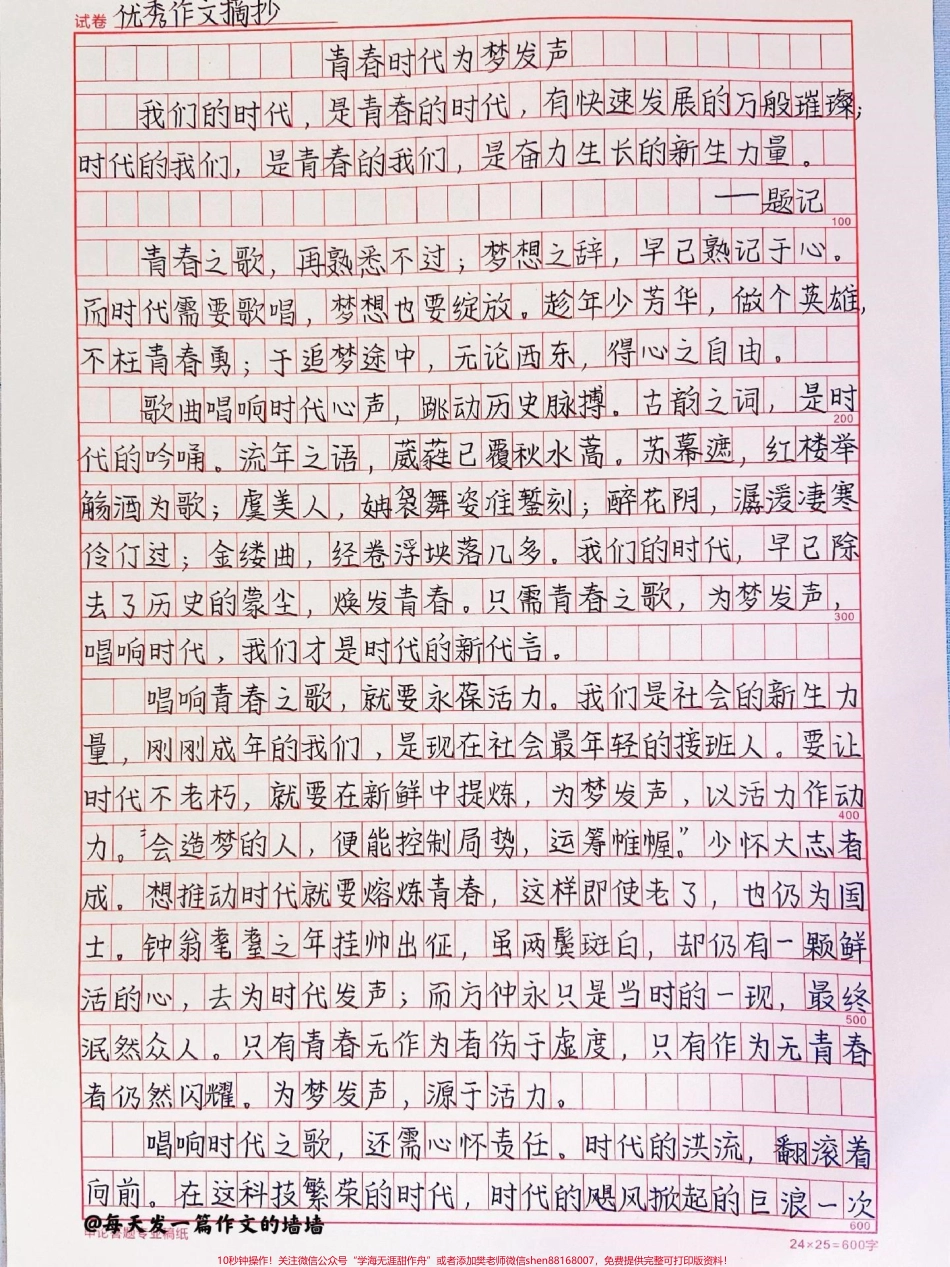 试卷 优秀作文摘抄
青春时代为梦发声
我们的时代，是青春的时代，有快速发展的万般璀璨；
时代的我们，是青春的我们，是奋力生长的新生力量。
——题记
100
青春之歌，再熟悉不过；梦想之辞，早已熟记于心。
而时代需要歌唱，梦想也要绽放。趁年少芳华，做个英雄，
不枉青春勇；于追梦途中，无论西东，得心之自由。
歌曲唱响时代心声，跳动历史脉搏。古韵之词，是时
200
代的吟诵。流年之语，葳蕤已覆秋水蒿。苏幕遮，红楼举
觞酒为歌；虞美人，姌袅舞姿难錾刻；醉花阴，潺湲凄寒
伶仃过；金缕曲，经卷浮埃落几多。我们的时代，早已除
去了历史的蒙尘，焕发青春。只需青春之歌，为梦发声，
300
唱响时代，我们才是时代的新代言。
唱响青春之歌，就要永葆活力。我们是社会的新生力
量，刚刚成年的我们，是现在社会最年轻的接班人。要让
时代不老朽，就要在新鲜中提炼，为梦发声，以活力作动
400
力。“会造梦的人，便能控制局势，运筹帷幄。”少怀大志者
成。想推动时代就要熔炼青春，这样即使老了，也仍为国
士。钟翁耄耋之年挂帅出征，虽两鬓斑白，却仍有一颗鲜
活的心，去为时代发声；而方仲永只是当时的一现，最终
500
泯然众人。只有青春无作为者伤于虚度，只有作为无青春
者仍然闪耀。为梦发声，源于活力。
唱响时代之歌，还需心怀责任。时代的洪流，翻滚着
向前。在这科技繁荣的时代，时代的飓风掀起的巨浪一次
600
@每天发一篇作文的墙墙
申论答题专业稿纸
24×25=600字
10秒钟操作！关注微信公众号“学海无涯甜作舟”或者添加樊老师微信shen88168007，免费提供完整可打印版资料！